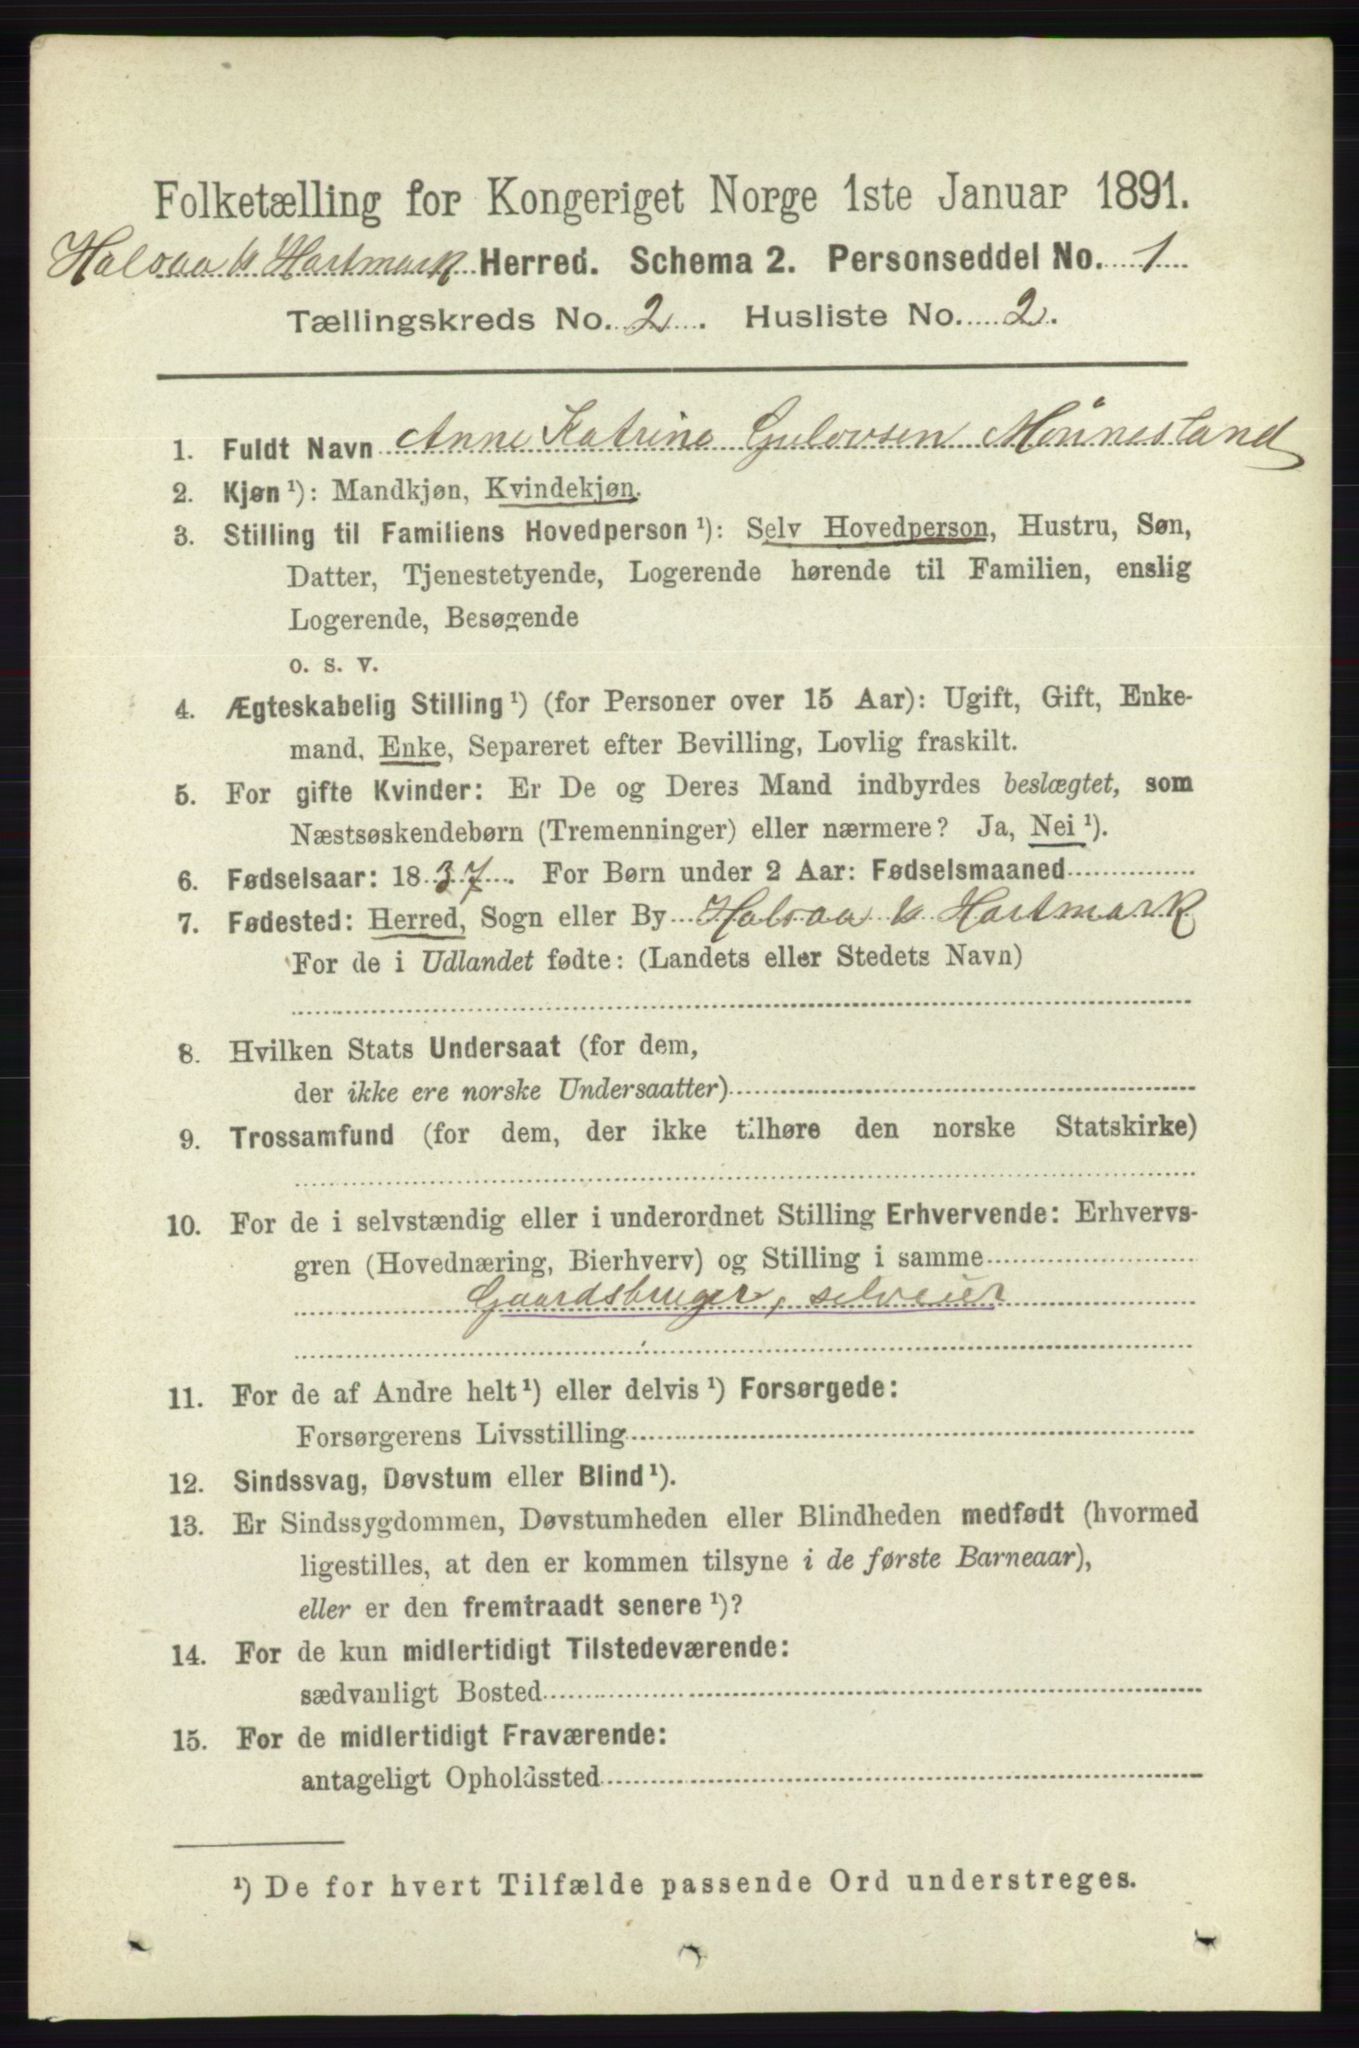 Folketælling for Kongeriget Norge 1ste Januar 1891.
Halsaa & Hartmark Herred. Schema 2. Personseddel No. 1
Tællingskreds No. 2. Husliste No. 2.
1. Fuldt Navn Anne Katrine Gulovsen Mönnestand
2. Kjøn ¹): Mandkjøn, Kvindekjøn.
3. Stilling til Familiens Hovedperson ¹): Selv Hovedperson, Hustru, Søn,
Datter, Tjenestetyende, Logerende hørende til Familien, enslig
Logerende, Besøgende
o. s. v.
4. Ægteskabelig Stilling ¹) (for Personer over 15 Aar): Ugift, Gift, Enke-
mand, Enke, Separeret efter Bevilling, Lovlig fraskilt.
5. For gifte Kvinder: Er De og Deres Mand indbyrdes beslægtet, som
Næstsøskendebørn (Tremenninger) eller nærmere? Ja, Nei ¹).
6. Fødselsaar: 1837. For Børn under 2 Aar: Fødselsmaaned
7. Fødested: Herred, Sogn eller By Halsaa & Hartmark
For de i Udlandet fødte: (Landets eller Stedets Navn)
8. Hvilken Stats Undersaat (for dem,
der ikke ere norske Undersaatter)
9. Trossamfund (for dem, der ikke tilhøre den norske Statskirke)
10. For de i selvstændig eller i underordnet Stilling Erhvervende: Erhvervs-
gren (Hovednæring, Bierhverv) og Stilling i samme
Gaardsbruger, selveier
11. For de af Andre helt ¹) eller delvis ¹) Forsørgede:
Forsørgerens Livsstilling
12. Sindssvag, Døvstum eller Blind ¹).
13. Er Sindssygdommen, Døvstumheden eller Blindheden medfødt (hvormed
ligestilles, at den er kommen tilsyne i de første Barneaar),
eller er den fremtraadt senere ¹)?
14. For de kun midlertidigt Tilstedeværende:
sædvanligt Bosted
15. For de midlertidigt Fraværende:
antageligt Opholdssted
¹) De for hvert Tilfælde passende Ord understreges.